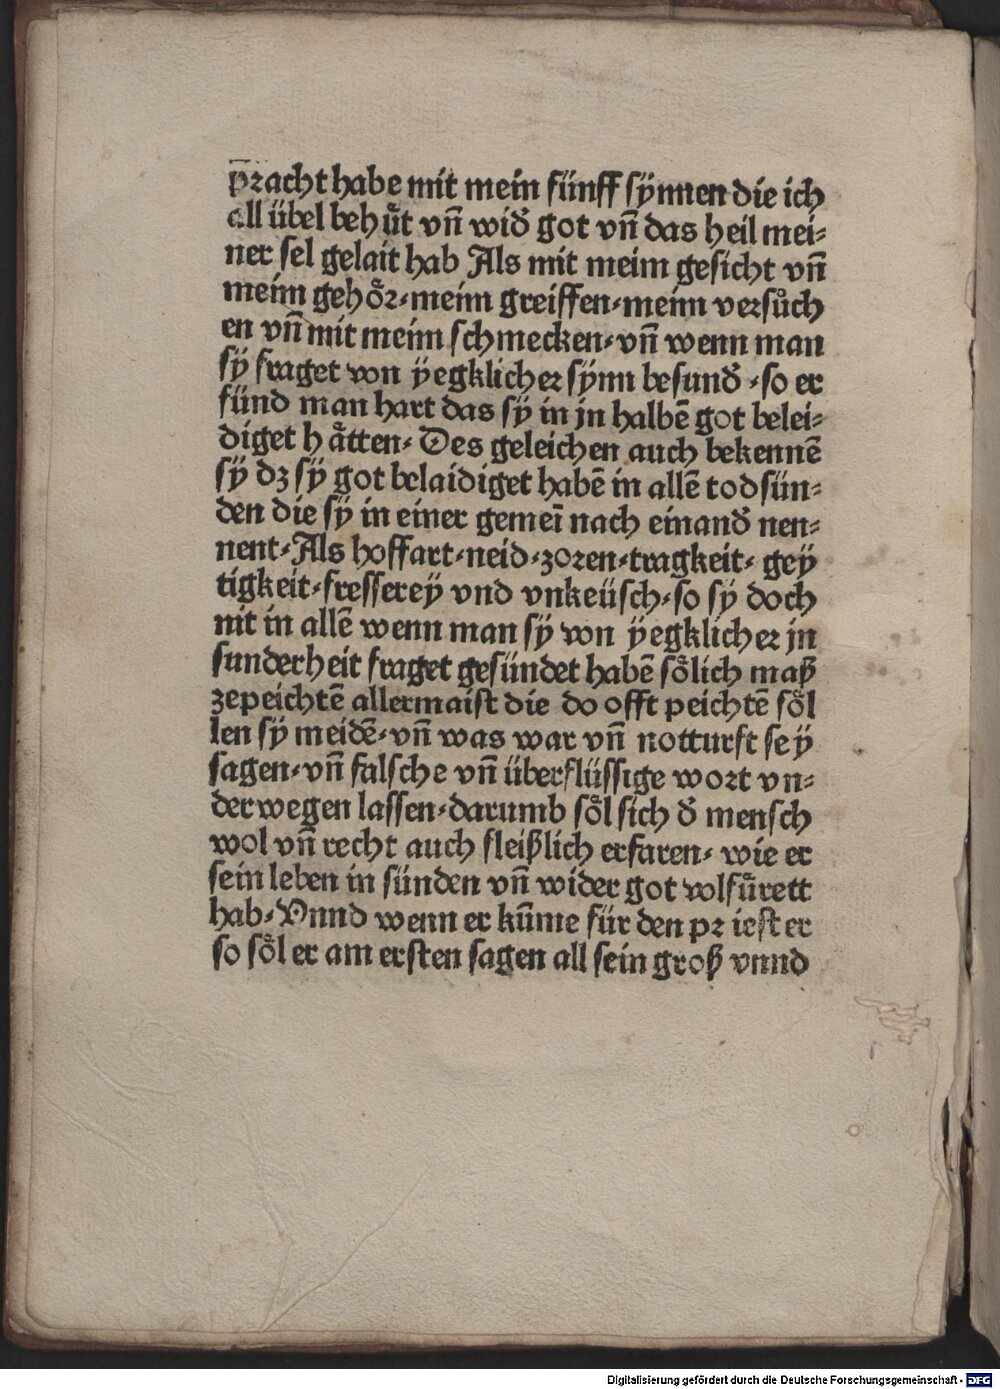 pracht habe mit mein fünff sÿnnen die ich
all übel behuͤt vn̄ wid̕ got vn̄ das heil mei⸗
ner sel gelait hab Als mit meim gesicht vn̄
meim gehoͤꝛ⸗meim greiffen⸗meim versuͦch
en vn̄ mit meim schmecken⸗vn̄ wenn man
sÿ fraget von ÿegklicher sÿnn besund̕⸗so er
fünd man hart das sÿ in jn halbē got belei⸗
diget haͤtten⸗ Des geleichen auch bekennē
sÿ dz sÿ got belaidiget habē in allē todsün⸗
den die sÿ in einer gemeī nach einand̕ nen⸗
nent⸗Als hoffart⸗neid⸗zoꝛen⸗tragkeit⸗ geÿ
tigkeit⸗fresserey vnd vnkeüsch⸗so sÿ doch
nit in allē wenn man sÿ von ÿegklicher jn
sunderheit fraget gesündet habē soͤlich maß
zepeichtē allermaist die do offt peichtē soͤl
len sÿ meidē⸗vn̄ was war vn̄ notturft seÿ
sagen⸗vn̄ falsche vn̄ überflüssige woꝛt vn⸗
derwegen lassen⸗darumb soͤl sich d̕ mensch
wol vn̄ recht auch fleißlich erfaren⸗ wie er
sein leben in sünden vn̄ wider got volfuͤrett
hab⸗Vnnd wenn er kūme für den pꝛiester
so soͤl er am ersten sagen all sein groß vnnd
Digitalisierung gefördert durch die Deutsche Forschungsgemeinschaft - DFG